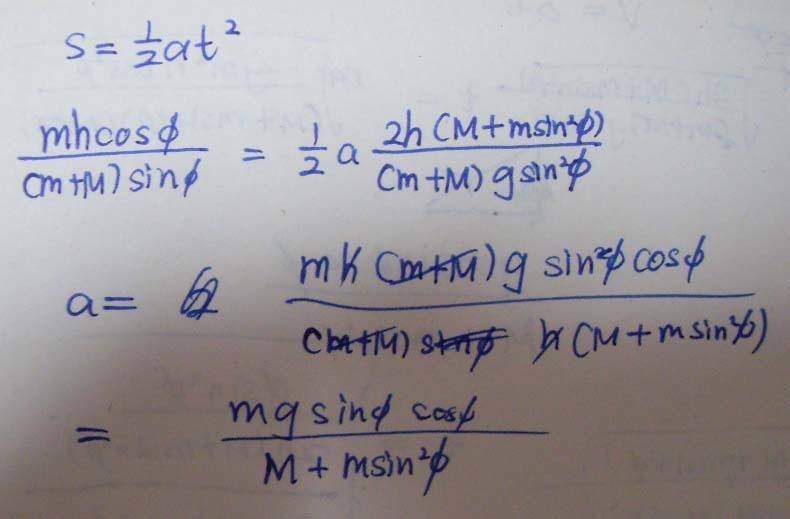 S = ½at²
mhcosϕ / (m+M) sinϕ = 1/2 a 2h (M+msin²ϕ) / (m+M) g sin²ϕ
a = mh (m+M) g sin²ϕ cosϕ / (m+M) sinϕ h (M + m sin²ϕ)
= mg sinϕ cosϕ / M + msin²ϕ